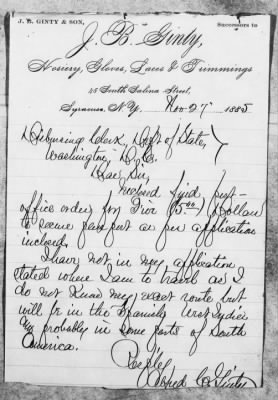 J. B. GINTY & SON,
Successors to
J. B. Ginty,
Hosiery, Gloves, Laces & Trimmings
45 South Salina Street,
Syracuse, N.Y. Nov 27" 1885
Disbursing Clerk, Dept of State,
Washington, D.C.
Dear Sir,
Inclosed find post-
office order for Five (5.00) Dollars
to secure passport as per application
inclosed.
I have not in my application
stated where I am to travel as I
do not know my exact route but
will be in the Spanish West Indies
and probably in some parts of South
America.
Resply
C. Ginty